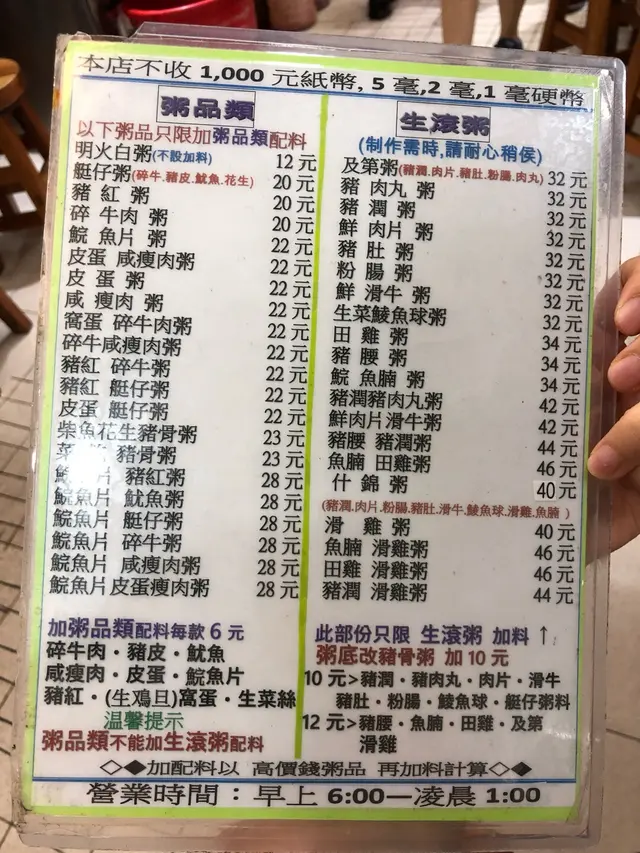 本店不收 1,000 元紙幣, 5 毫,2 毫,1 毫硬幣
粥品類
以下粥品只限加粥品類配料
明火白粥(不設加料) 12 元
艇仔粥(碎牛.豬皮.魷魚.花生) 20 元
豬 紅 粥 20 元
碎 牛肉 粥 20 元
鯇 魚片 粥 22 元
皮蛋 咸瘦肉粥 22 元
皮 蛋 粥 22 元
咸 瘦肉 粥 22 元
窩蛋 碎牛肉粥 22 元
碎牛咸瘦肉粥 22 元
豬紅 碎牛粥 22 元
豬紅 艇仔粥 22 元
皮蛋 艇仔粥 22 元
柴魚花生豬骨粥 23 元
菜 豬骨粥 23 元
片 豬紅粥 28 元
鯇魚片 魷魚粥 28 元
鯇魚片 艇仔粥 28 元
鯇魚片 碎牛粥 28 元
鯇魚片 咸瘦肉粥 28 元
鯇魚片皮蛋瘦肉粥 28 元
加粥品類配料每款 6 元
碎牛肉·豬皮·魷魚
咸瘦肉·皮蛋·鯇魚片
豬紅·(生鴊旦)窩蛋·生菜絲
温馨提示
粥品類不能加生滾粥配料
生滾粥
(制作需時,請耐心稍侯)
及第粥(豬潤.肉片.豬肚.粉腸.肉丸) 32 元
豬 肉丸 粥 32 元
豬 潤 粥 32 元
鮮 肉片 粥 32 元
豬 肚 粥 32 元
粉 腸 粥 32 元
鮮 滑牛 粥 32 元
生菜鯪魚球粥 32 元
田 雞 粥 34 元
豬 腰 粥 34 元
鯇 魚腩 粥 34 元
豬潤豬肉丸粥 42 元
鮮肉片滑牛粥 42 元
豬腰 豬潤粥 44 元
魚腩 田雞粥 46 元
什 錦 粥 40 元
(豬潤.肉片.粉腸.豬肚.滑牛.鯪魚球.滑雞.魚腩 )
滑 雞 粥 40 元
魚腩 滑雞粥 46 元
田雞 滑雞粥 46 元
豬潤 滑雞粥 44 元
此部份只限 生滾粥 加料 ↑
粥底改豬骨粥 加 10 元
10 元>豬潤·豬肉丸·肉片·滑牛
豬肚·粉腸·鯪魚球·艇仔粥料
12 元>豬腰·魚腩·田雞·及第
滑雞
◇◆加配料以 高價錢粥品 再加料計算◇◆
營業時間：早上 6:00—凌晨 1:00